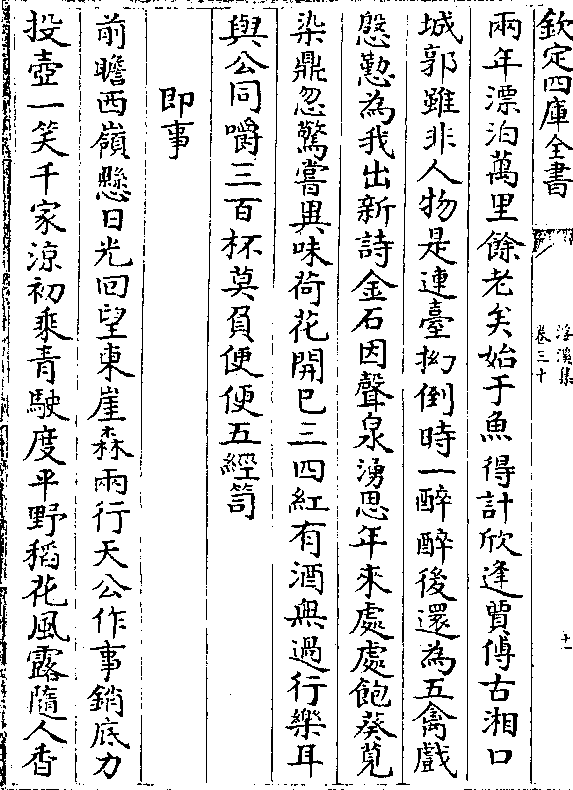 欽定四庫全書
浮溪集
卷三十
十一
兩年漂泊萬里餘老矣始于魚得計欣逢賈傅古湘口
城郭雖非人物是連臺拗倒時一醉醉後還為五禽戲
慇懃為我出新詩金石因聲泉湧思年來處處飽葵莧
染鼎忽驚嘗異味荷花開已三四紅有酒無過行樂耳
與公同嚼三百杯莫負便便五經笥
即事
前瞻西嶺懸日光回望東崖森兩行天公作事銷底力
投壺一笑千家涼初乘青駛度平野稻花風露隨人香